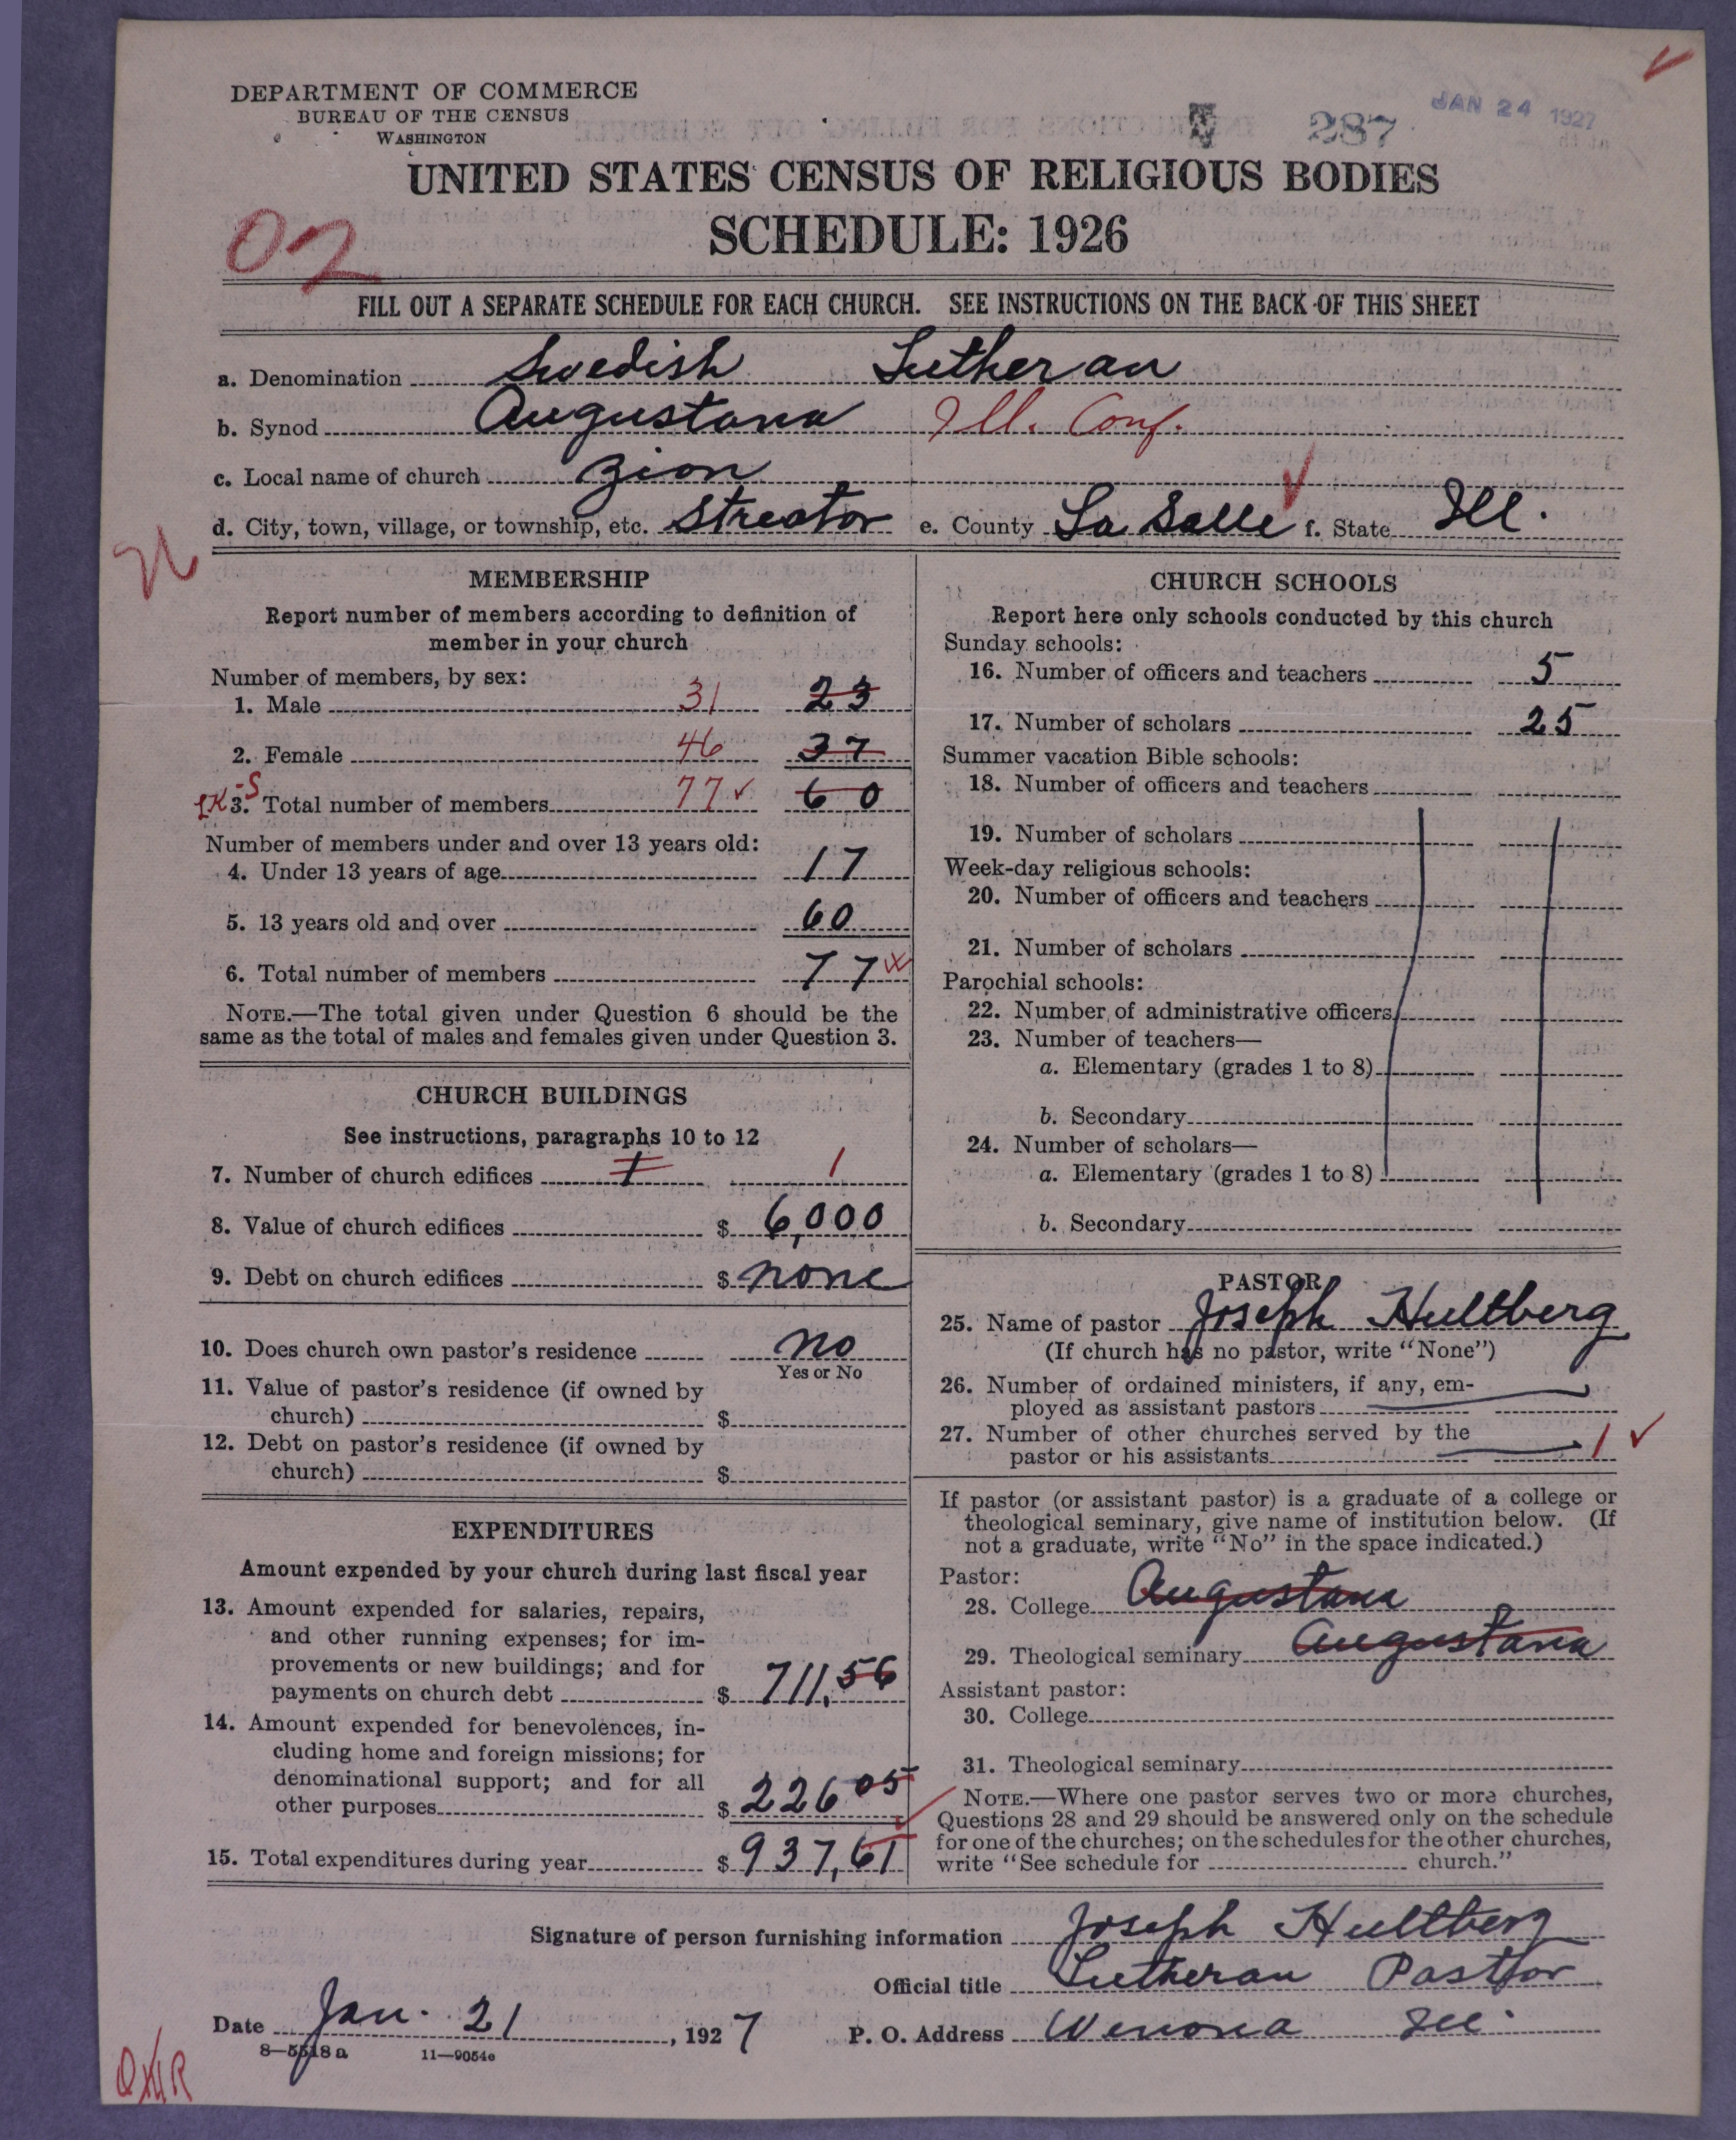 DEPARTMENT OF COMMERCE
BUREAU OF THE CENSUS
WASHINGTON
287
JAN 24 1927
UNITED STATES CENSUS OF RELIGIOUS BODIES
SCHEDULE: 1926
02
FILL OUT A SEPARATE SCHEDULE FOR EACH CHURCH. SEE INSTRUCTIONS ON THE BACK OF THIS SHEET
a. Denomination Swedish Lutheran
b. Synod Augustana Ill. Conf.
c. Local name of church Zion
d. City, town, village, or township, etc. Streator e. County La Salle f. State Ill.
MEMBERSHIP
Report number of members according to definition of
member in your church
Number of members, by sex:
1. Male 31 23
2. Female 46 37
3. Total number of members 77 60
Number of members under and over 13 years old:
4. Under 13 years of age 17
5. 13 years old and over 60
6. Total number of members 77
NOTE.—The total given under Question 6 should be the
same as the total of males and females given under Question 3.
CHURCH BUILDINGS
See instructions, paragraphs 10 to 12
7. Number of church edifices 1 1
8. Value of church edifices $ 6,000
9. Debt on church edifices $ none
10. Does church own pastor's residence no
Yes or No
11. Value of pastor's residence (if owned by
church) $
12. Debt on pastor's residence (if owned by
church) $
EXPENDITURES
Amount expended by your church during last fiscal year
13. Amount expended for salaries, repairs,
and other running expenses; for im-
provements or new buildings; and for
payments on church debt $ 711,56
14. Amount expended for benevolences, in-
cluding home and foreign missions; for
denominational support; and for all
other purposes $ 226 05
15. Total expenditures during year $ 937,61
CHURCH SCHOOLS
Report here only schools conducted by this church
Sunday schools:
16. Number of officers and teachers 5
17. Number of scholars 25
Summer vacation Bible schools:
18. Number of officers and teachers
19. Number of scholars
Week-day religious schools:
20. Number of officers and teachers
21. Number of scholars
Parochial schools:
22. Number of administrative officers
23. Number of teachers—
a. Elementary (grades 1 to 8)
b. Secondary
24. Number of scholars—
a. Elementary (grades 1 to 8)
b. Secondary
PASTOR
25. Name of pastor Joseph Hultberg
(If church has no pastor, write "None")
26. Number of ordained ministers, if any, em-
ployed as assistant pastors
27. Number of other churches served by the
pastor or his assistants 1
If pastor (or assistant pastor) is a graduate of a college or
theological seminary, give name of institution below. (If
not a graduate, write "No" in the space indicated.)
Pastor:
28. College Augustana
29. Theological seminary Augustana
Assistant pastor:
30. College
31. Theological seminary
NOTE.—Where one pastor serves two or more churches,
Questions 28 and 29 should be answered only on the schedule
for one of the churches; on the schedules for the other churches,
write "See schedule for church."
Signature of person furnishing information Joseph Hultberg
Official title Lutheran Pastor
Date Jan. 21, 1927 P. O. Address Wenona Ill.
8—5518 a 11—9054e